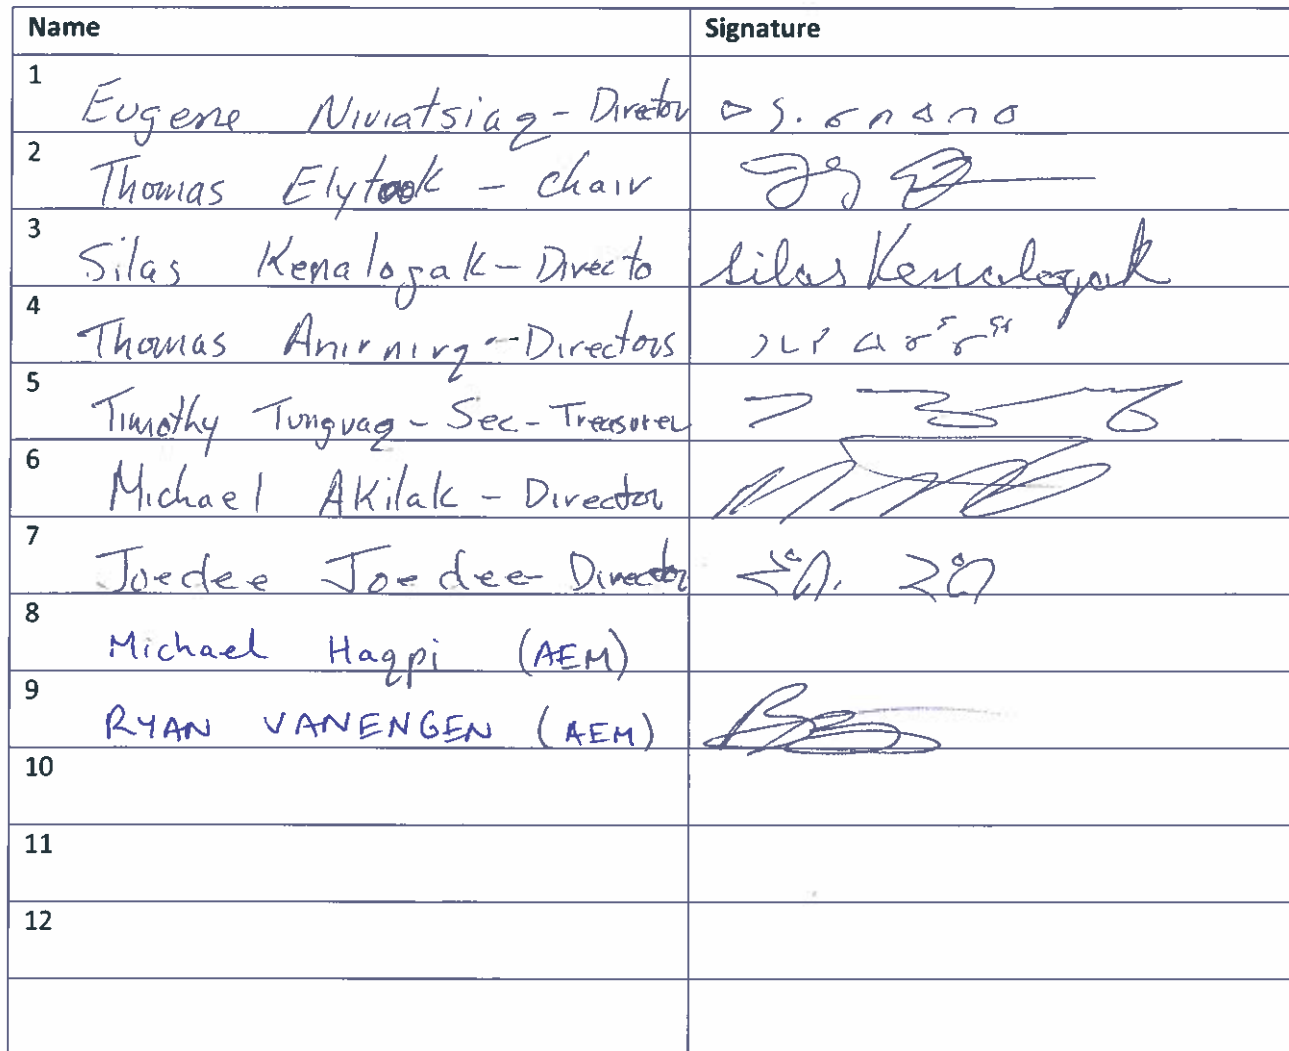 Name Signature
1 Eugene Niviatsiaq - Director
2 Thomas Elytook - chair
3 Silas Kenalogak - Directo Silas Kenalogak
4 Thomas Anirnirq - Directors
5 Timothy Tungvaq - Sec - Treasurer
6 Michael Akilak - Director
7 Joedee Joedee - Director
8 Michael Haqpi (AEM)
9 RYAN VANENGEN (AEM)
10
11
12